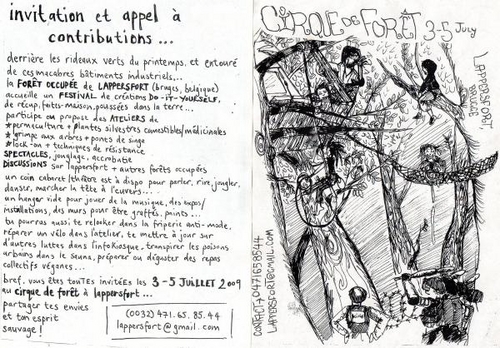 invitation et appel à
contributions ...
derrière les rideaux verts du printemps, et entouré
de ces macabres bâtiments industriels...
la FORÊT OCCUPÉE de LAPPERSFORT (bruges, belgique)
accueille un FESTIVAL de créations DO-IT-YOURSELF,
de récup, faits-maison, poussées dans la terre...
participe ou propose des ATELIERS de
*permaculture + plantes silvestres comestibles/médicinales
*grimpe aux arbres + ponts de singe
*lock-on + techniques de résistance
SPECTACLES, jonglage, accrobatie
DISCUSSIONS sur lappersfort + autres forêts occupées
un coin cabaret/théâtre est à dispo pour parler, rire, jongler,
danser, marcher la tête à l'envers...
un hangar vide pour jouer de la musique, des expos/
installations, des murs pour être graffés, peints...
tu pourras aussi te relooker dans la friperie anti-mode,
réparer un vélo dans l'atelier, te mettre à jour sur
d'autres luttes dans l'infokiosque, transpirer les poisons
urbains dans le sauna, préparer ou déguster des repas
collectifs véganes...
bref, vous êtes touTes invitées les 3-5 JUILLET 2009
au cirque de forêt à lappersfort...
partager tes envies
et ton esprit
sauvage !
(0032) 471.65.85.44
lappersfort@gmail.com
CIRQUE DE FORÊT 3-5 July
LAPPERSFORT
BRUGGE
CONTACT: +32471658544
LAPPERSFORT@GMAIL.COM